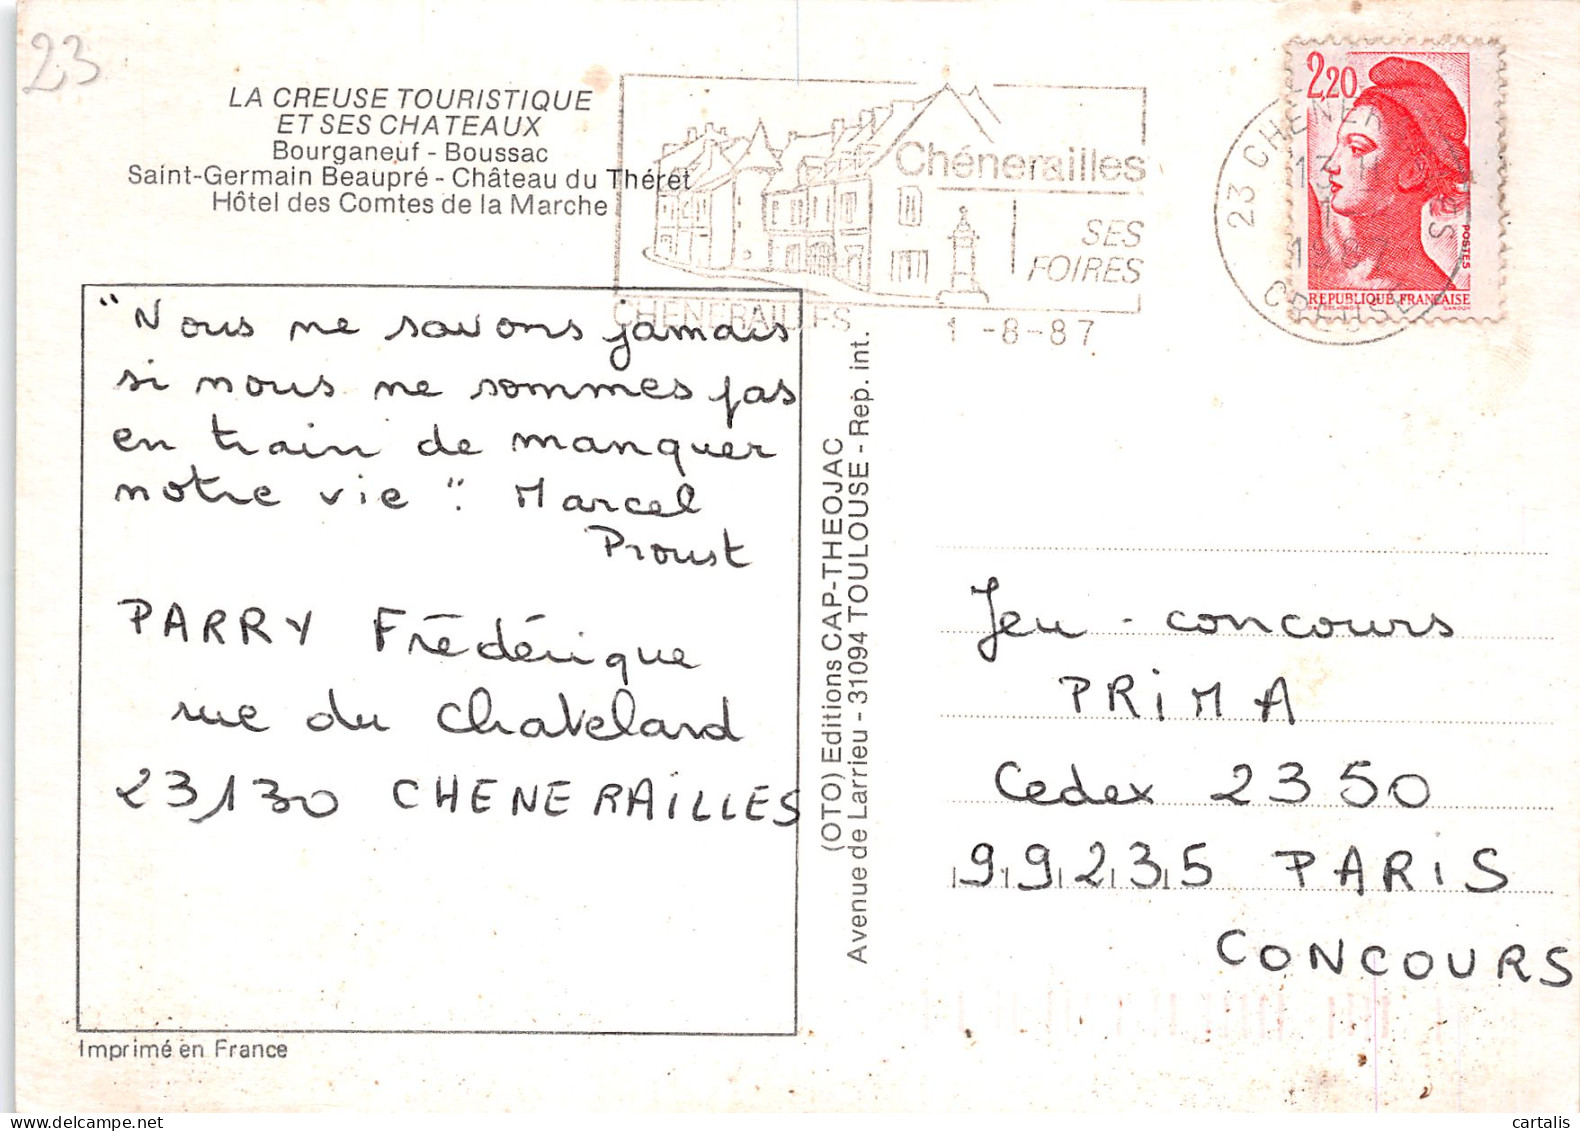 23
LA CREUSE TOURISTIQUE
ET SES CHATEAUX
Bourganeuf - Boussac
Saint-Germain Beaupré - Château du Thérét
Hôtel des Comtes de la Marche
Chénerailles
SES
FOIRES
CHENERAILLES
1 -8-87
23 CHENERAILLES
13 H
1
1987
CREUSE
2,20
POSTES
REPUBLIQUE FRANÇAISE
GANDON
"Nous ne savons jamais
si nous ne sommes pas
en train de manquer
notre vie". Marcel
Proust
PARRY Frédérique
rue du Chatelard
23130 CHENERAILLES
Imprimé en France
(OTO) Editions CAP-THEOJAC
Avenue de Larrieu - 31094 TOULOUSE - Rep. int.
Jeu - concours
PRIMA
Cedex 2350
99235 PARIS
CONCOURS
cartalis